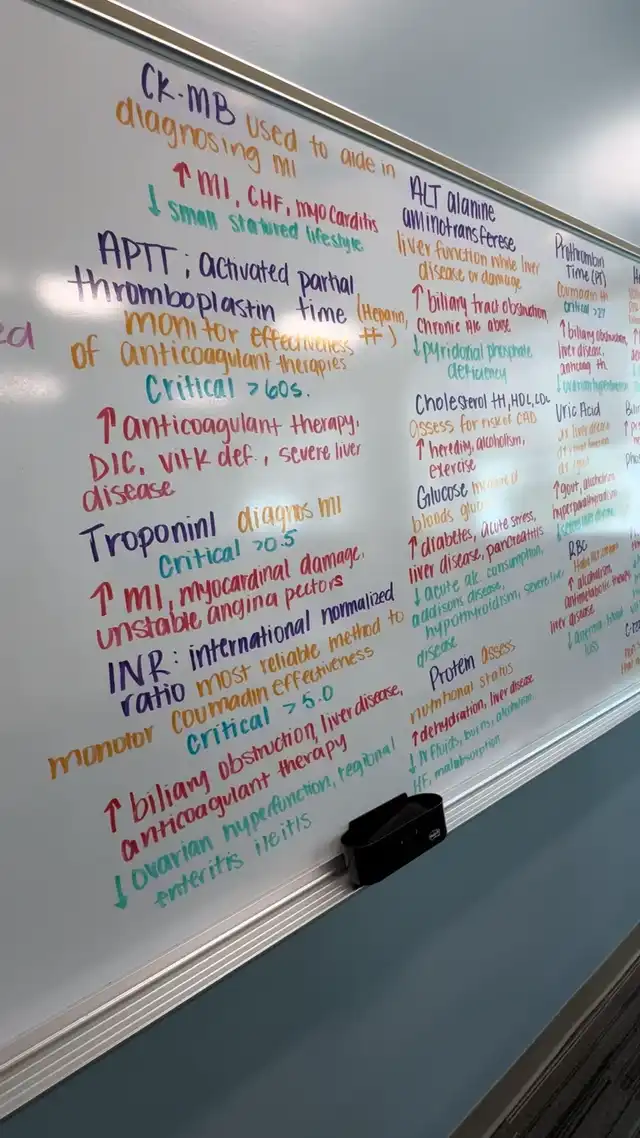 ed
CK-MB used to aide in
diagnosing MI
↑ MI, CHF, myocarditis
↓ small statured lifestyle
APTT; activated partial
thromboplastin time (Heparin,
monitor effectiveness #)
of anticoagulant therapies
Critical >60s.
↑ anticoagulant therapy,
DIC, vit K def., severe liver
disease
TroponinI diagnos MI
Critical >0.5
↑ MI, myocardinal damage,
unstable angina pectors
INR: international normalized
ratio most reliable method to
monotor coumadin effectiveness
critical > 5.0
↑ biliary obstruction, liver disease,
anticoagulant therapy
↓ ovarian hyperfunction, regional
enteritis ileitis
ALT alanine
aminotransferese
liver function while liver
disease or damage
↑ biliary tract obstruction,
chronic Alc abuse
↓ pyridonal phosphate
deficiency
Cholesterol tH, HDL, LDL
assess for risk of CAD
↑ heredity, alcoholism,
exercise
Glucose
bloods
↑ diabetes, acute stress,
liver disease, pancreatitis
↓ acute alc. consumption,
addisons disease,
hypothyroidism, severe liver
disease
Protein assess
nutritional status
↑ dehydration, liver disease
↓ IV fluids, burns, alcoholism
HF, malabsorption
Prothrombin
Time (PT)
Coumadin tH
critical >27
↑ biliary obstruction,
liver disease,
Uric Acid
liver disease
↑ gout, alcoholism
hyperparathyroidism
RBC
↑ alcoholism,
antimetabolic therapy
liver disease
loss